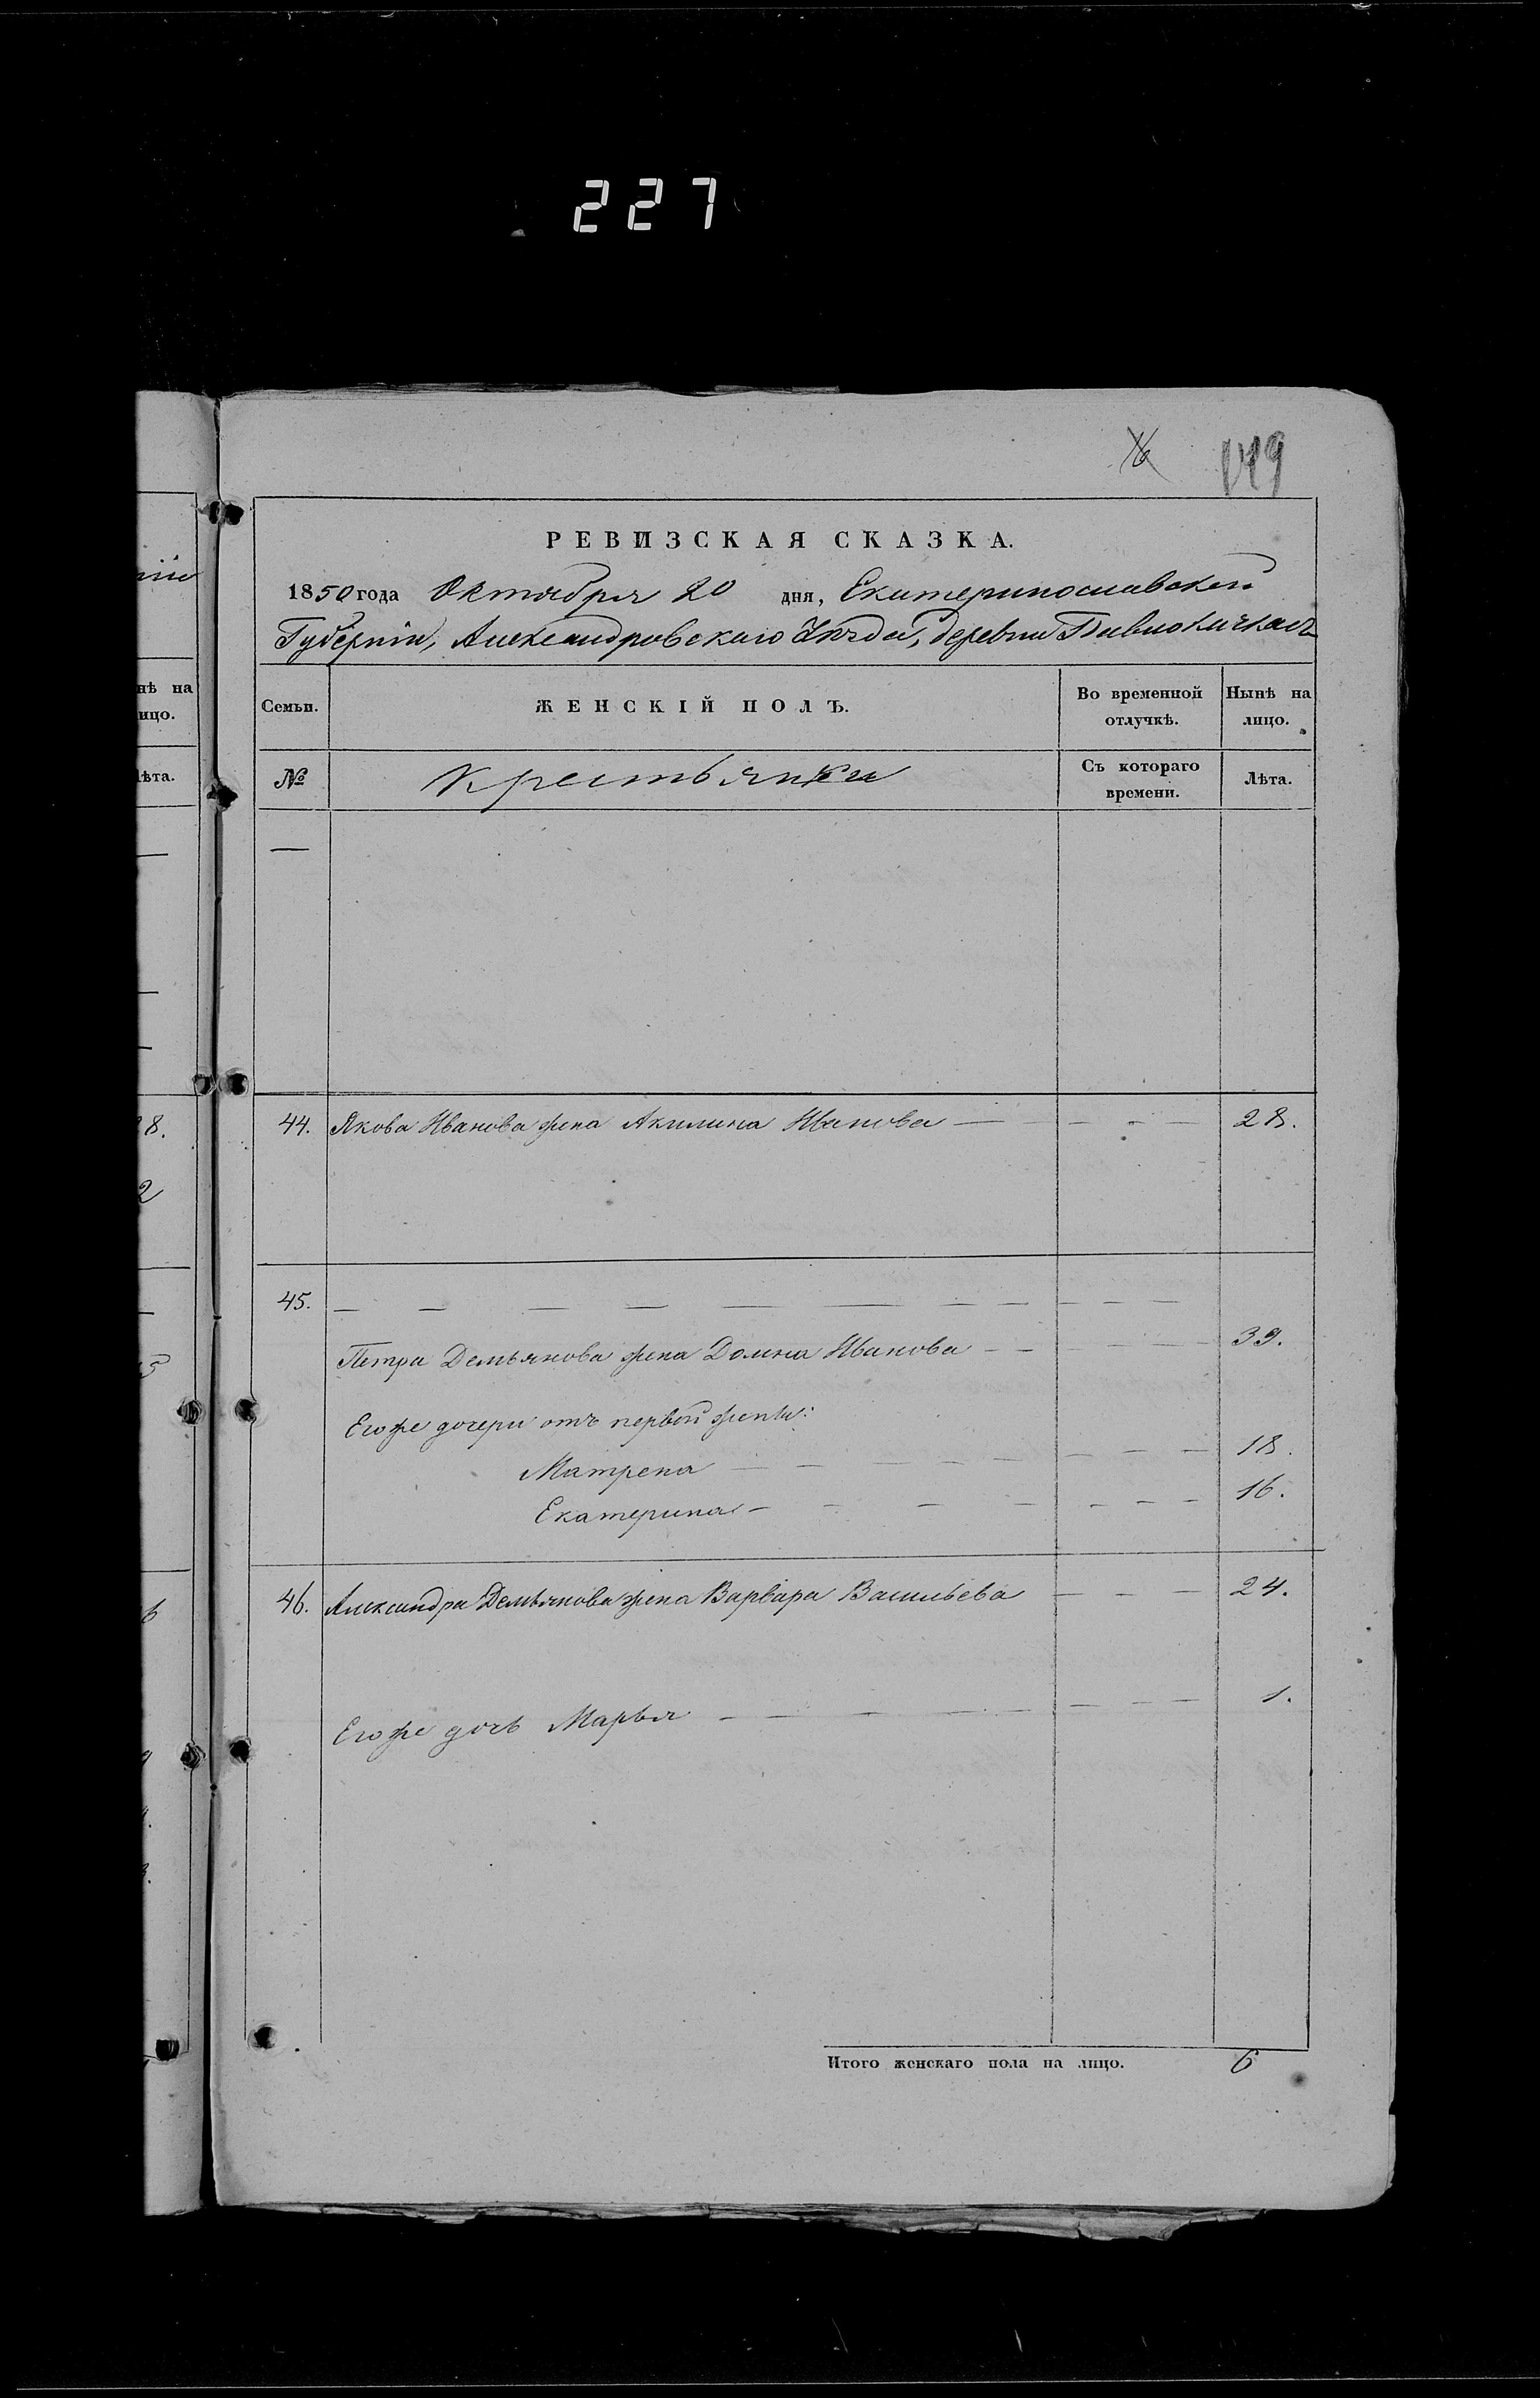 227
16 149
РЕВИЗСКАЯ СКАЗКА.
1850 года Октября 20 дня, Екатеринославской
Губерніи, Александровскаго Уѣзда, деревни
Семьи. ЖЕНСКІЙ ПОЛЪ. Во временной отлучкѣ. Нынѣ на лицо.
№ Крестьянки Съ котораго времени. Лѣта.
—
44. Якова Иванова жена Акилина Иванова — — — — 28.
45. — — — — — — — — — — —
Петра Демьянова жена Домна Иванова — — — — — 39.
Его же дочери отъ первой жены:
Матрена — — — — — — — — — 18.
Екатерина — — — — — — — — 16.
46. Александра Демьянова жена Варвара Васильева — — — 24.
Его же дочь Марья — — — — — — — — — 1.
Итого женскаго пола на лицо. 6
нѣ на
ицо.
ѣта.
8.
2
5
6